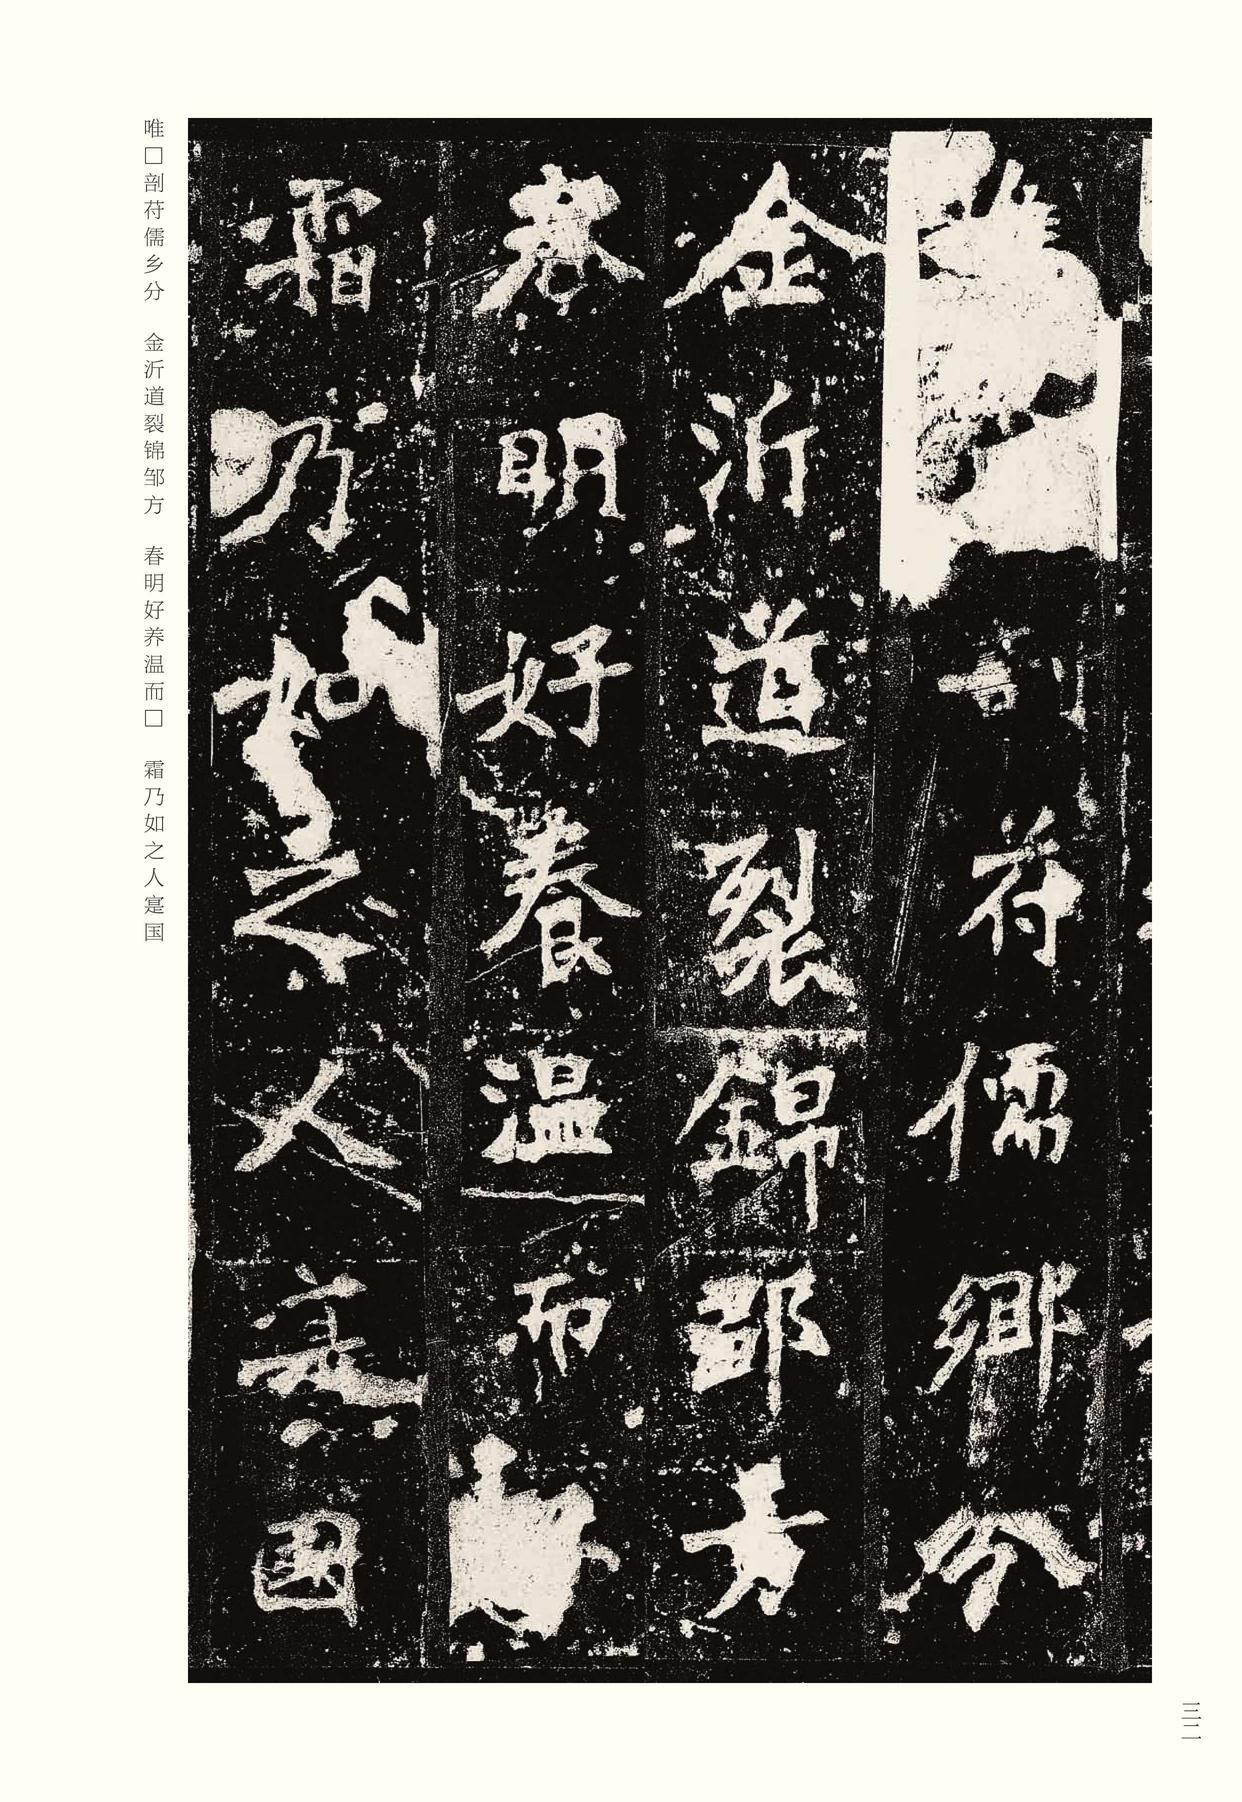 剖苻儒鄉分
金沂道裂錦鄒方
春明好養溫而
霜乃如之人寔國
唯□剖苻儒乡分　金沂道裂锦邹方　春明好养温而□　霜乃如之人寔国
三二